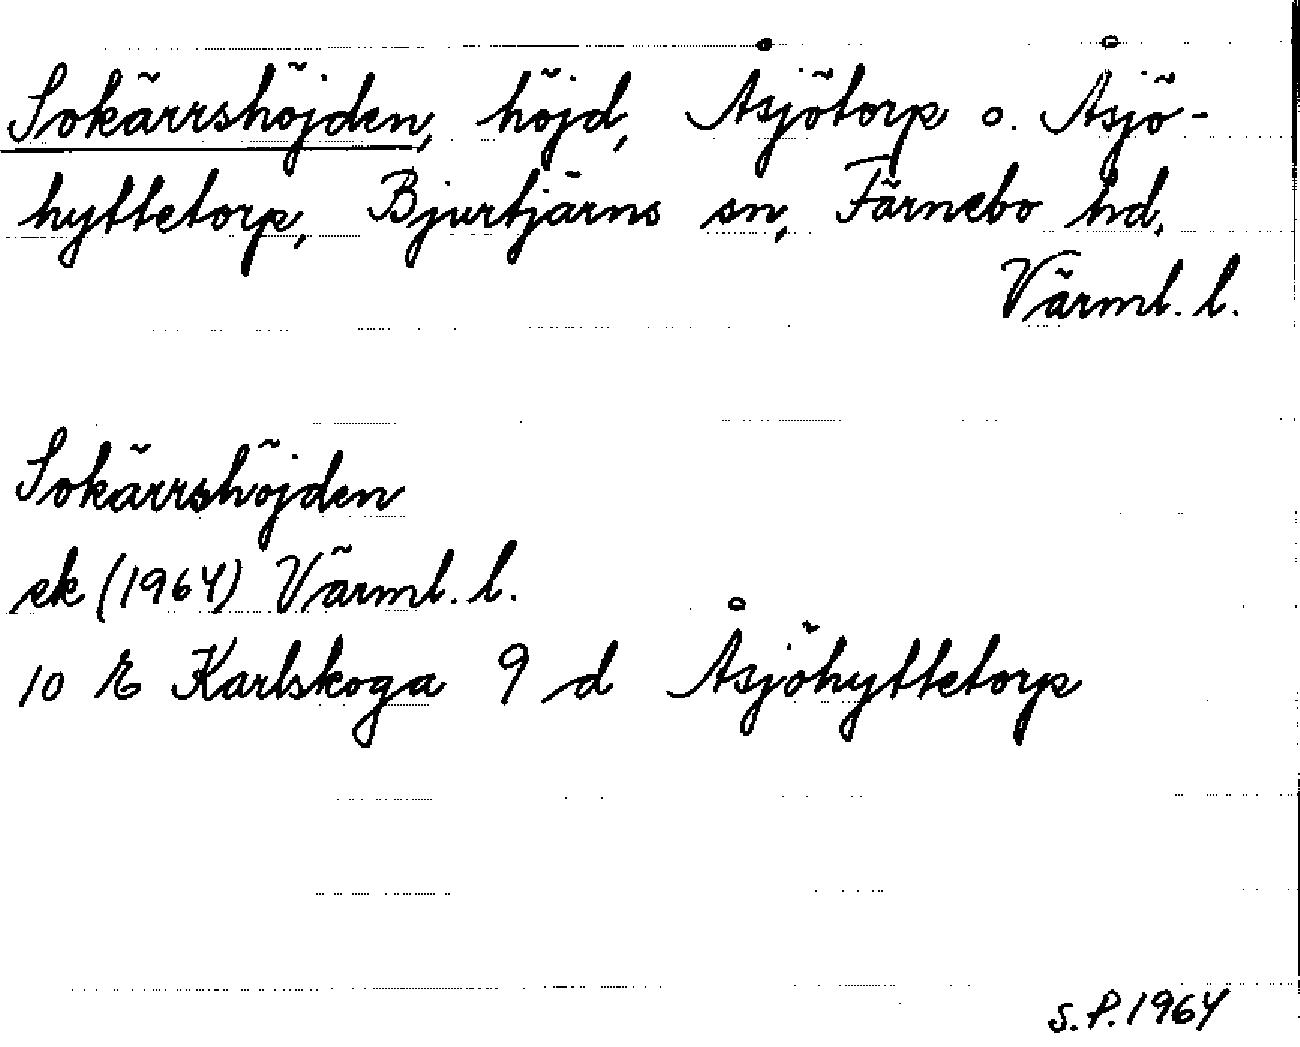 Sokärrshöjden, höjd, Åsjötorp o. Åsjö-
hyttetorp, Bjurtjärns sn, Färnebo hd,
Värml. l.
Sokärrshöjden
ek (1964) Värml. l.
10 E Karlskoga 9 d Åsjöhyttetorp
S.P. 1964